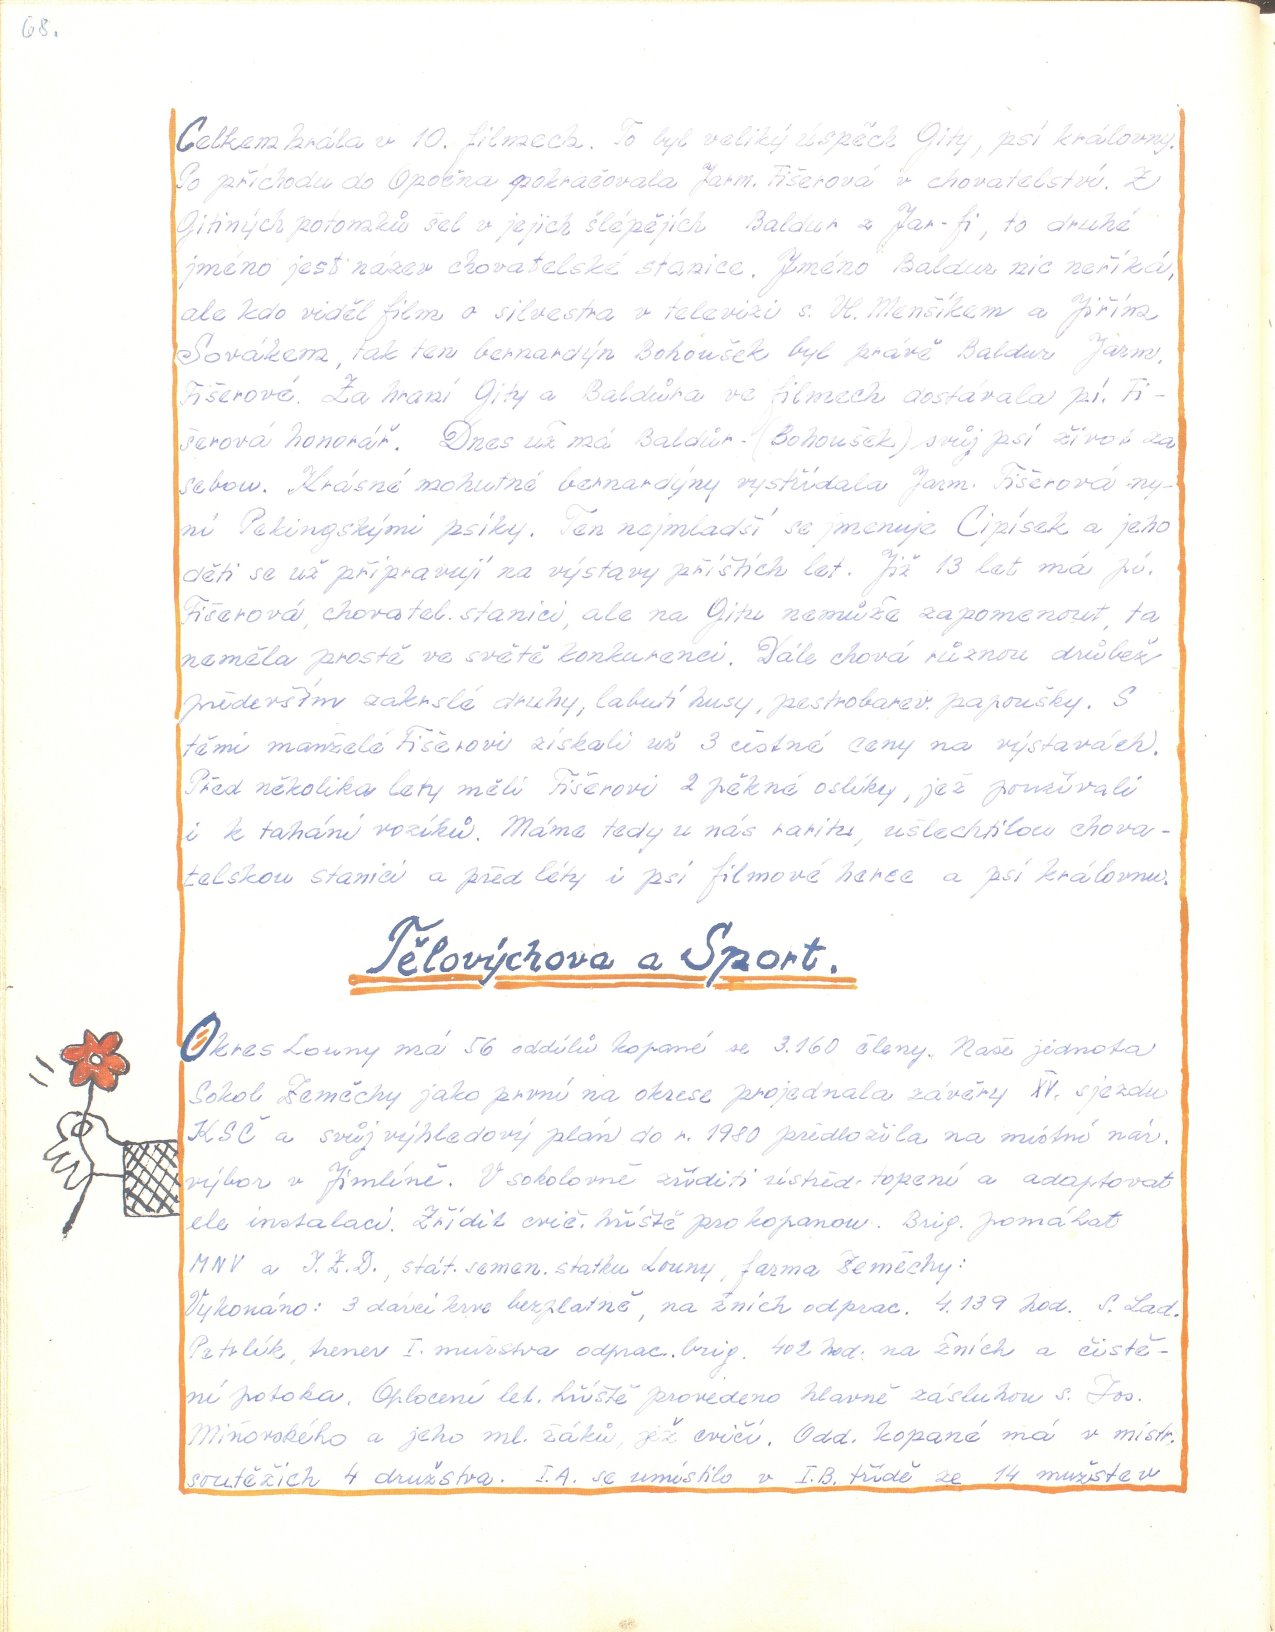 68.
Celkem hrála v 10. filmech. To byl veliký úspěch Gity, psí královny.
Po příchodu do Opočna pokračovala Jarm. Fišerová v chovatelství. Z
Gitiných potomků šel v jejích šlépějích Baldur z Jar-fi, to druhé
jméno jest název chovatelské stanice. Jméno Baldur nic neříká,
ale kdo viděl film o silvestra v televizi s. Vl. Menšíkem a Jiřím
Sovákem, tak ten bernardýn Bohoušek byl právě Baldur Jarm.
Fišerové. Za hraní Gity a Baldůra ve filmech dostávala pí. Fi-
šerová honorář. Dnes už má Baldůr-(Bohoušek) svůj psí život za
sebou. Krásné mohutné bernardýny vystřídala Jarm. Fišerová ny-
ní Pekingskými psíky. Ten nejmladší se jmenuje Cipísek a jeho
děti se už připravují na výstavy příštích let. Již 13 let má pí.
Fišerová, chovatel. stanici, ale na Gitu nemůže zapomenout, ta
neměla prostě ve světě konkurenci. Dále chová různou drůbež
především zakrslé druhy, labutí husy, pestrobarev. papoušky. S
těmi manželé Fišerovi získali už 3 čestné ceny na výstavách.
Před několika lety měli Fišerovi 2 pěkné oslíky, jež používali
i k tahání vozíků. Máme tedy u nás raritu, ušlechtilou chova-
telskou stanici a před léty i psí filmové herce a psí královnu.
Tělovýchova a Sport.
Okres Louny má 56 oddílů kopané se 3.160 členy. Naše jednota
Sokol Zeměchy jako první na okrese projednala závěry XV. sjezdu
KSČ a svůj výhledový plán do r. 1980 předložila na místní nár.
výbor v Jimlíně. V sokolovně zříditi ústřed. topení a adaptovat
ele instalaci. Zřídit cvič. hřiště pro kopanou. Brig. pomáhat
MNV a J.Z.D., stát. semen. statku Louny, farma Zeměchy:
Vykonáno: 3 dárci krve bezplatně, na žních odprac. 4.139 hod. S. Lad.
Petrlík, trener I. mužstva odprac. brig. 402 hod. na žních a čistě-
ní potoka. Oplocení let. hřiště provedeno hlavně zásluhou s. Jos.
Miňovského a jeho ml. žáků, jež cvičí. Odd. kopané má v mistr.
soutěžích 4 družstva. I.A. se umístilo v I.B. třídě ze 14 mužstev